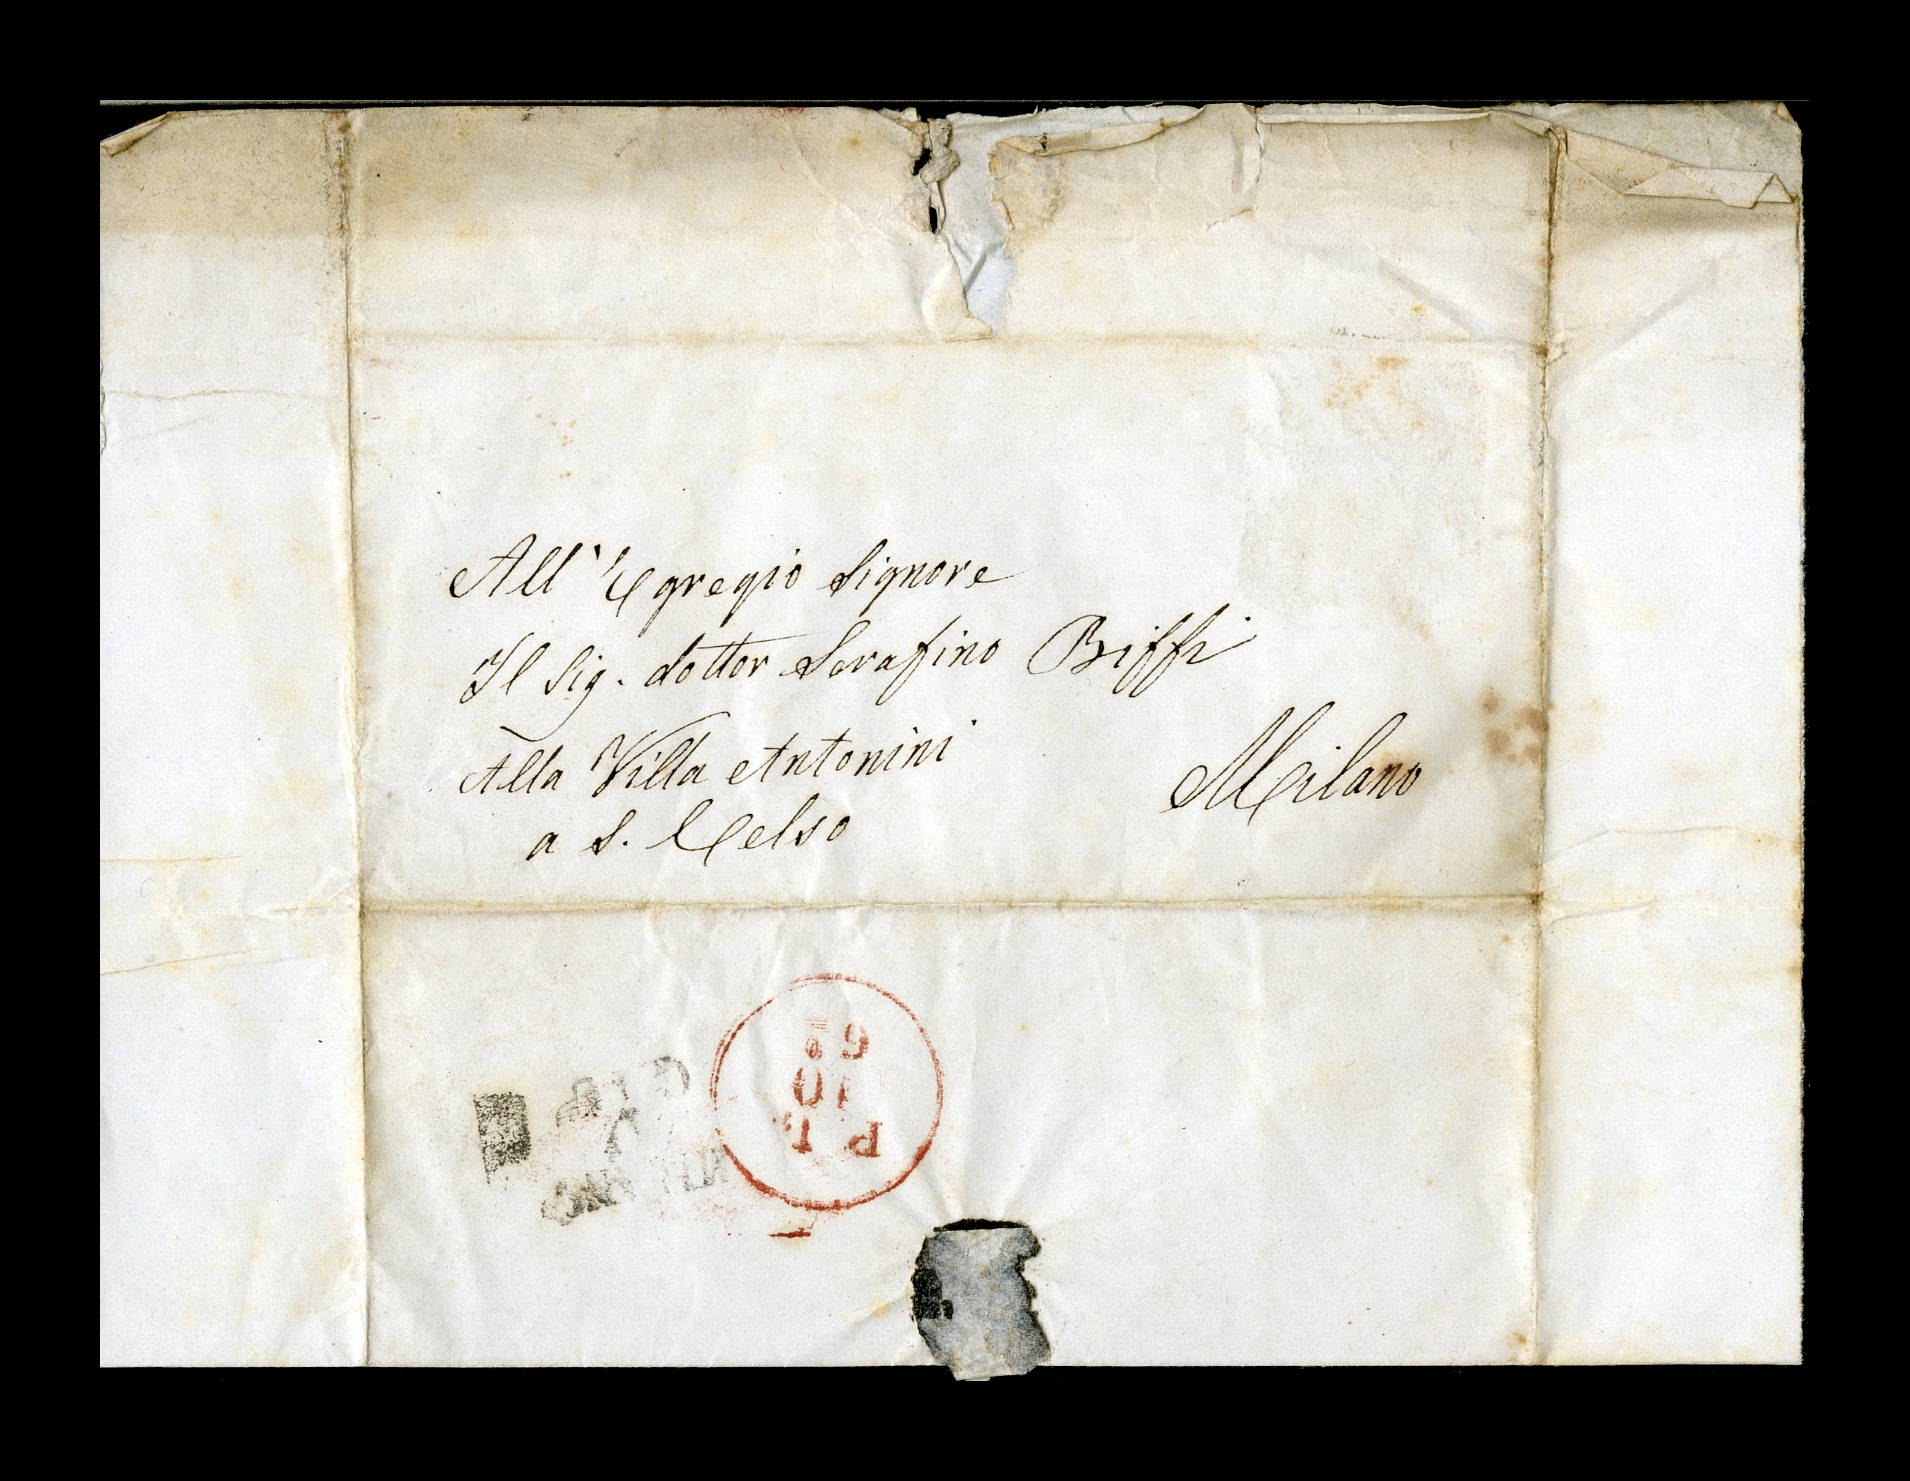 All'Egregio Signore
Il Sig. dottor Serafino Biffi
Alla Villa Antonini
Milano
a S. Celso
P L
10
MILANO